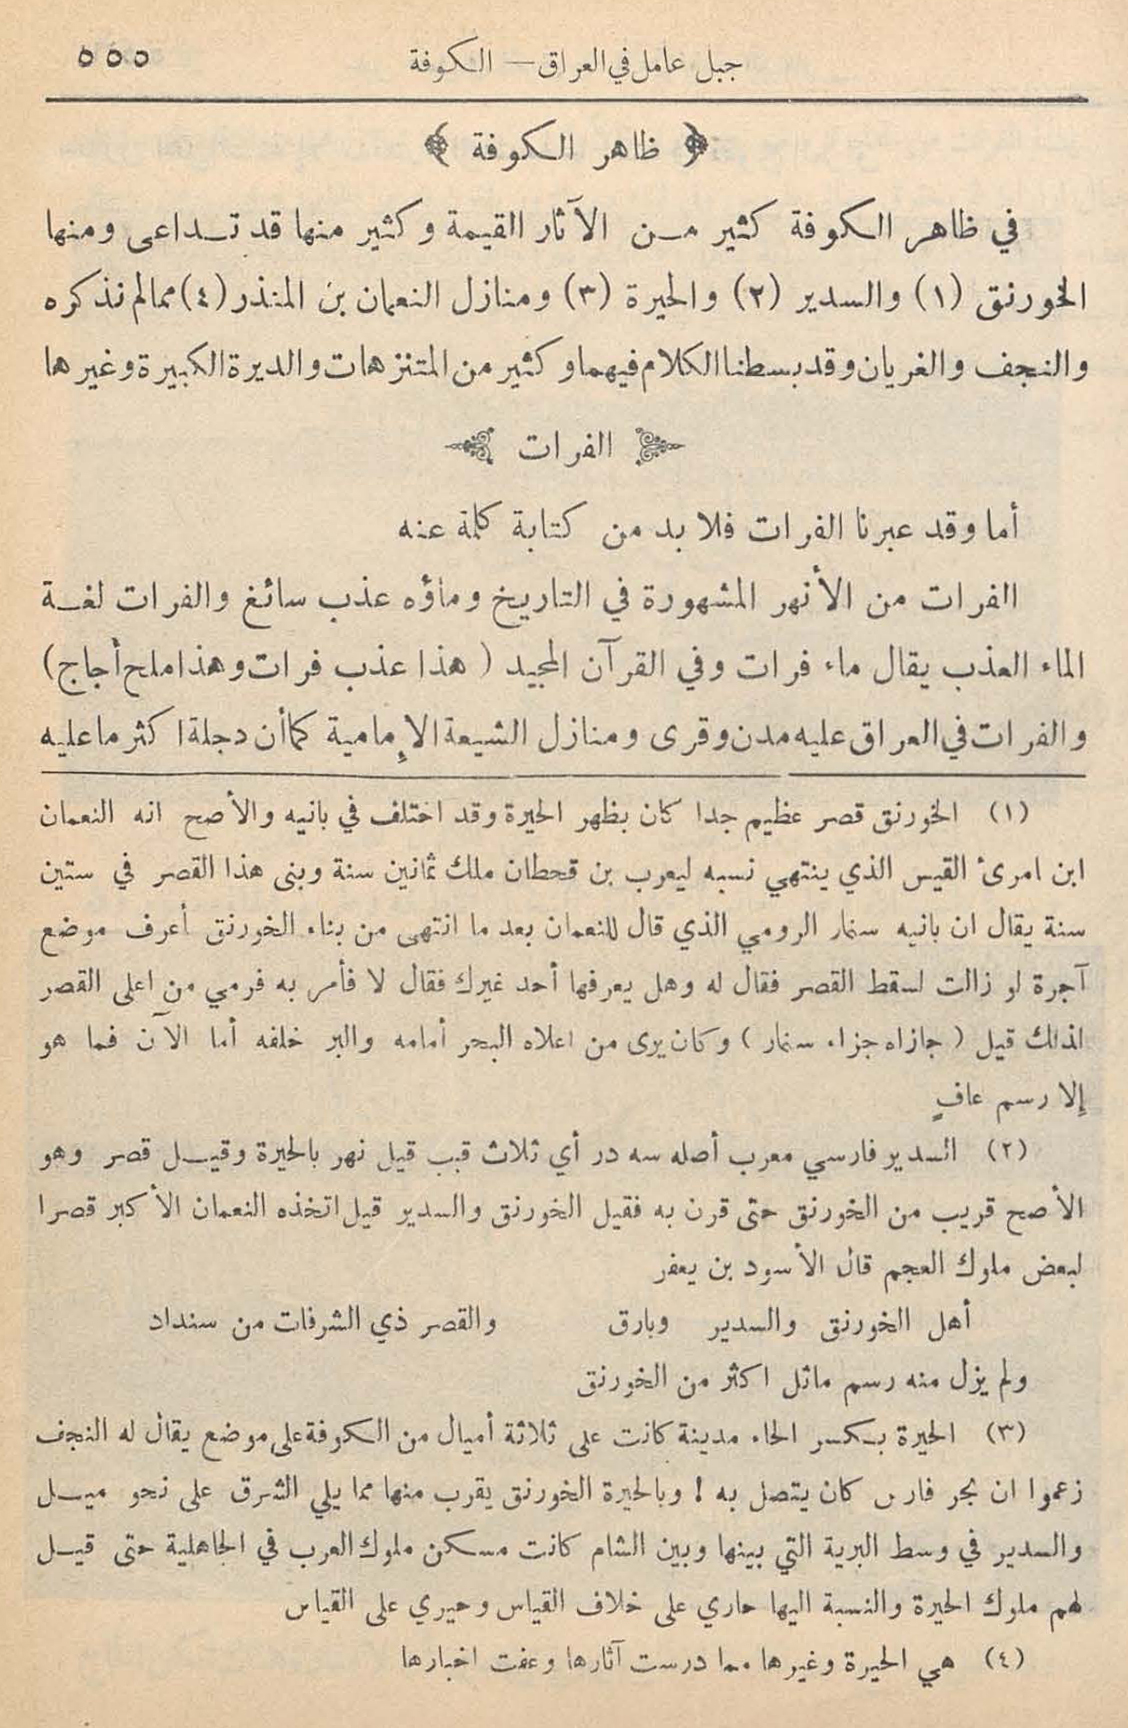 جبل عامل في العراق — الكوفة ٥٥٥
﴿ ظاهر الكوفة ﴾
في ظاهر الكوفة كثير مـن الآثار القيمة وكثير منها قد تـداعى ومنها
الخورنق (١) والسدير (٢) والحيرة (٣) ومنازل النعمان بن المنذر (٤) مما لم نذكره
والنجف والغريان وقد بسطنا الكلام فيهما وكثير من المتنزهات والديرة الكبيرة وغيرها
الفرات
أما وقد عبرنا الفرات فلا بد من كتابة كلمة عنه
الفرات من الأنهر المشهورة في التاريخ وماؤه عذب سائغ والفرات لغـة
الماء العذب يقال ماء فرات وفي القرآن المجيد ( هذا عذب فرات وهذا ملح أجاج )
والفرات في العراق عليه مدن وقرى ومنازل الشيعة الإمامية كما أن دجلة اكثر ما عليه
(١) الخورنق قصر عظيم جدا كان بظهر الحيرة وقد اختلف في بانيه والأصح انه النعمان
ابن امرئ القيس الذي ينتهي نسبه ليعرب بن قحطان ملك ثمانين سنة وبنى هذا القصر في ستين
سنة يقال ان بانيه سنمار الرومي الذي قال للنعمان بعد ما انتهى من بناء الخورنق أعرف موضع
آجرة لو زالت لسقط القصر فقال له وهل يعرفها أحد غيرك فقال لا فأمر به فرمي من اعلى القصر
لذلك قيل ( جازاه جزاء سنمار ) وكان يرى من اعلاه البحر أمامه والبر خلفه أما الآن فما هو
إلا رسم عافٍ
(٢) السدير فارسي معرب أصله سه در أي ثلاث قبب قيل نهر بالحيرة وقيـل قصر وهو
الأصح قريب من الخورنق حتى قرن به فقيل الخورنق والسدير قيل اتخذه النعمان الأكبر قصرا
لبعض ملوك العجم قال الأسود بن يعفر
أهل الخورنق والسدير وبارق والقصر ذي الشرفات من سنداد
ولم يزل منه رسم ماثل اكثر من الخورنق
(٣) الحيرة بـكسر الحاء مدينة كانت على ثلاثة أميال من الكوفة على موضع يقال له النجف
زعموا ان بحر فارس كان يتصل به ! وبالحيرة الخورنق يقرب منها مما يلي الشرق على نحو ميـل
والسدير في وسط البرية التي بينها وبين الشام كانت مسكن ملوك العرب في الجاهلية حتى قيـل
لهم ملوك الحيرة والنسبة اليها حاري على خلاف القياس وحيري على القياس
(٤) هي الحيرة وغيرها مما درست آثارها وعفت اخبارها